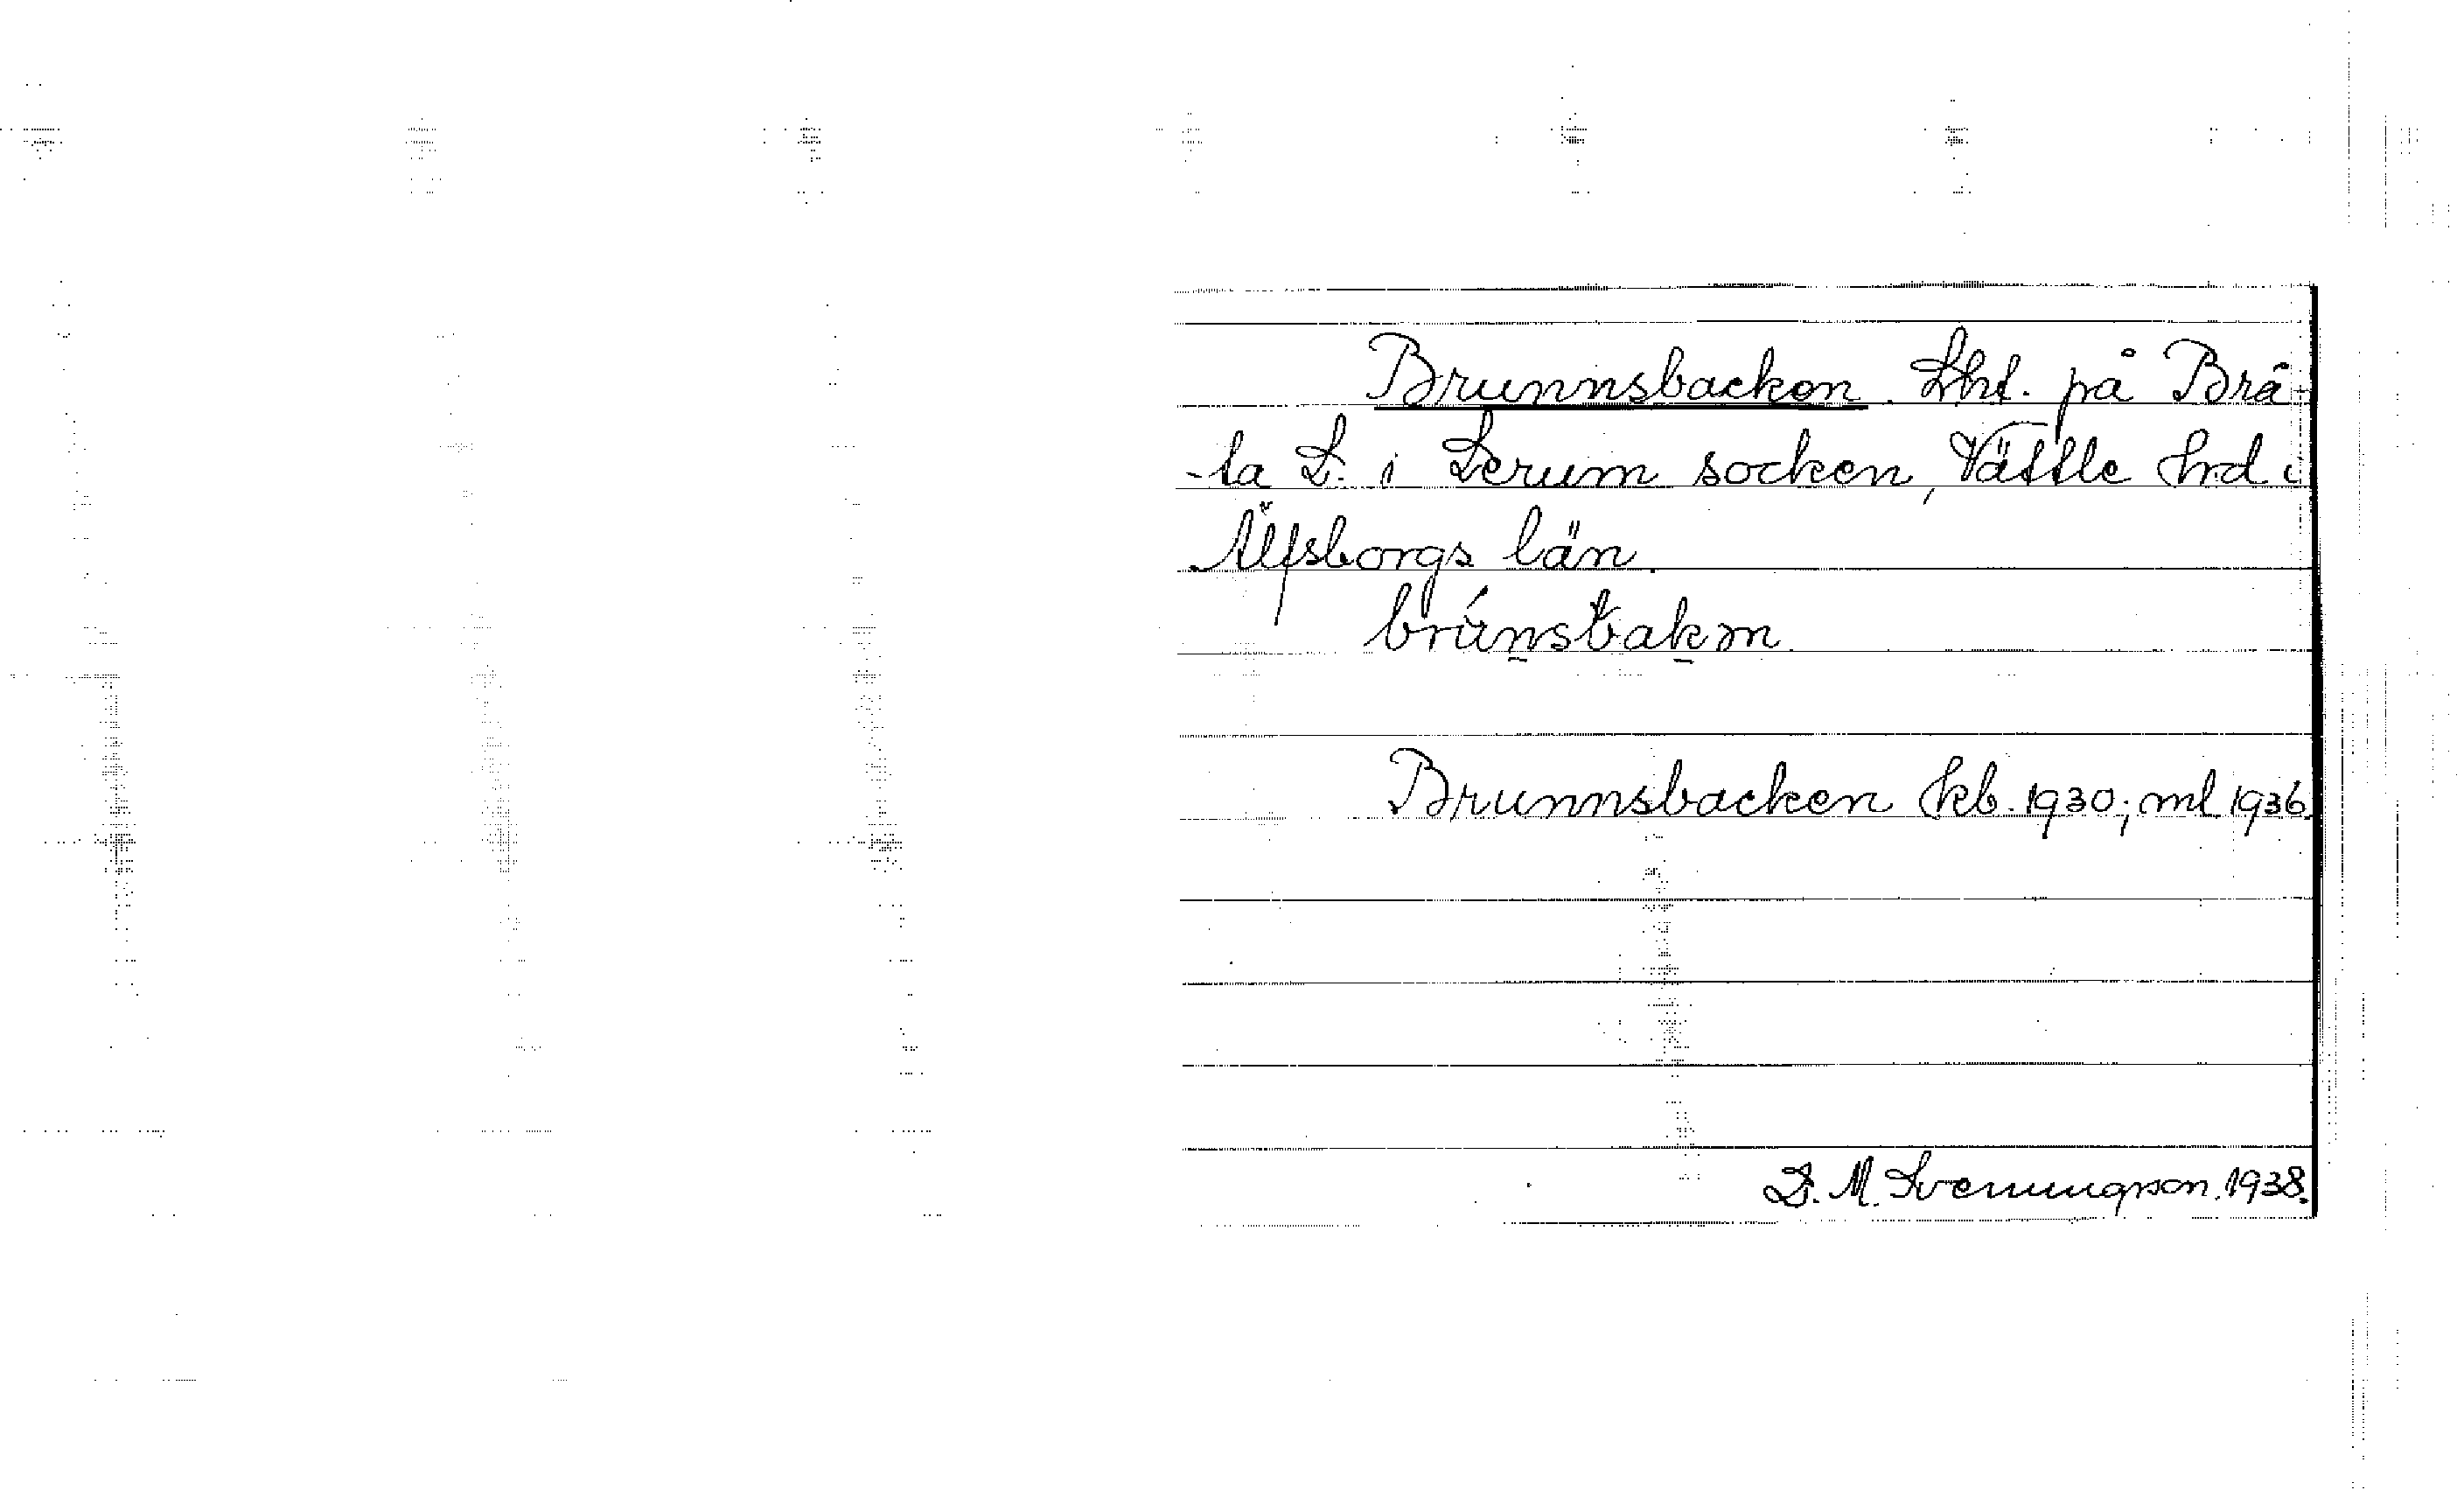 Brunnsbacken. Lht. på Brå-
-ta L. i Lerum socken, Vättle hrd i
Älfsborgs län.
brúnsbakən
Brunnsbacken kb. 1930; ml 1936.
D. M. Svenungson. 1938.